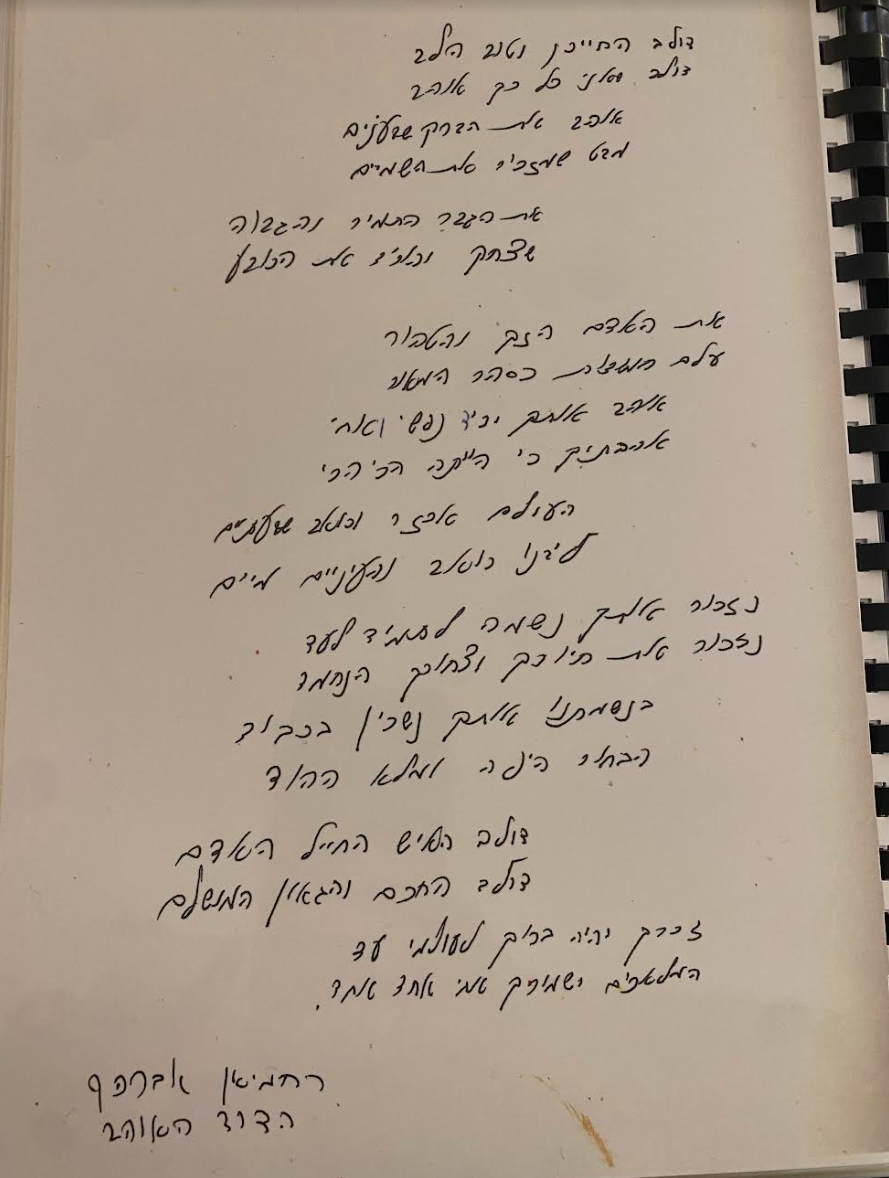 דולב החייכן וטוב הלב
דולב שאני כל כך אוהב
אוהב את הברק שבעינים
מבט שמזכיר את השמיים
את הגבר התמיר והגבוה
שצחק והוריד את הכובע
את האדם הזך והטהור
עלם חמודות כסהר המאור
אוהב אותך ידיד נפשי ואחי
אהבתיך כי היית הכי הכי
העולם אכזר וכואב שבעתיים
ליבנו כואב והעיניים מיים
נזכור אותך נשמה לתמיד לעד
נזכור את חיוכך וצחוקך הנחמד
בנשמתנו אותך נשכין בכבוד
הבחור היפה ומלא ההוד
דולב האיש החייל האדם
דולב החכם והגאון המושלם
זכרך יהיה ברוך לעולמי עד
המלאכים ישמרוך אחד אחד.
רחמיאן אברהם
הדוד האוהב